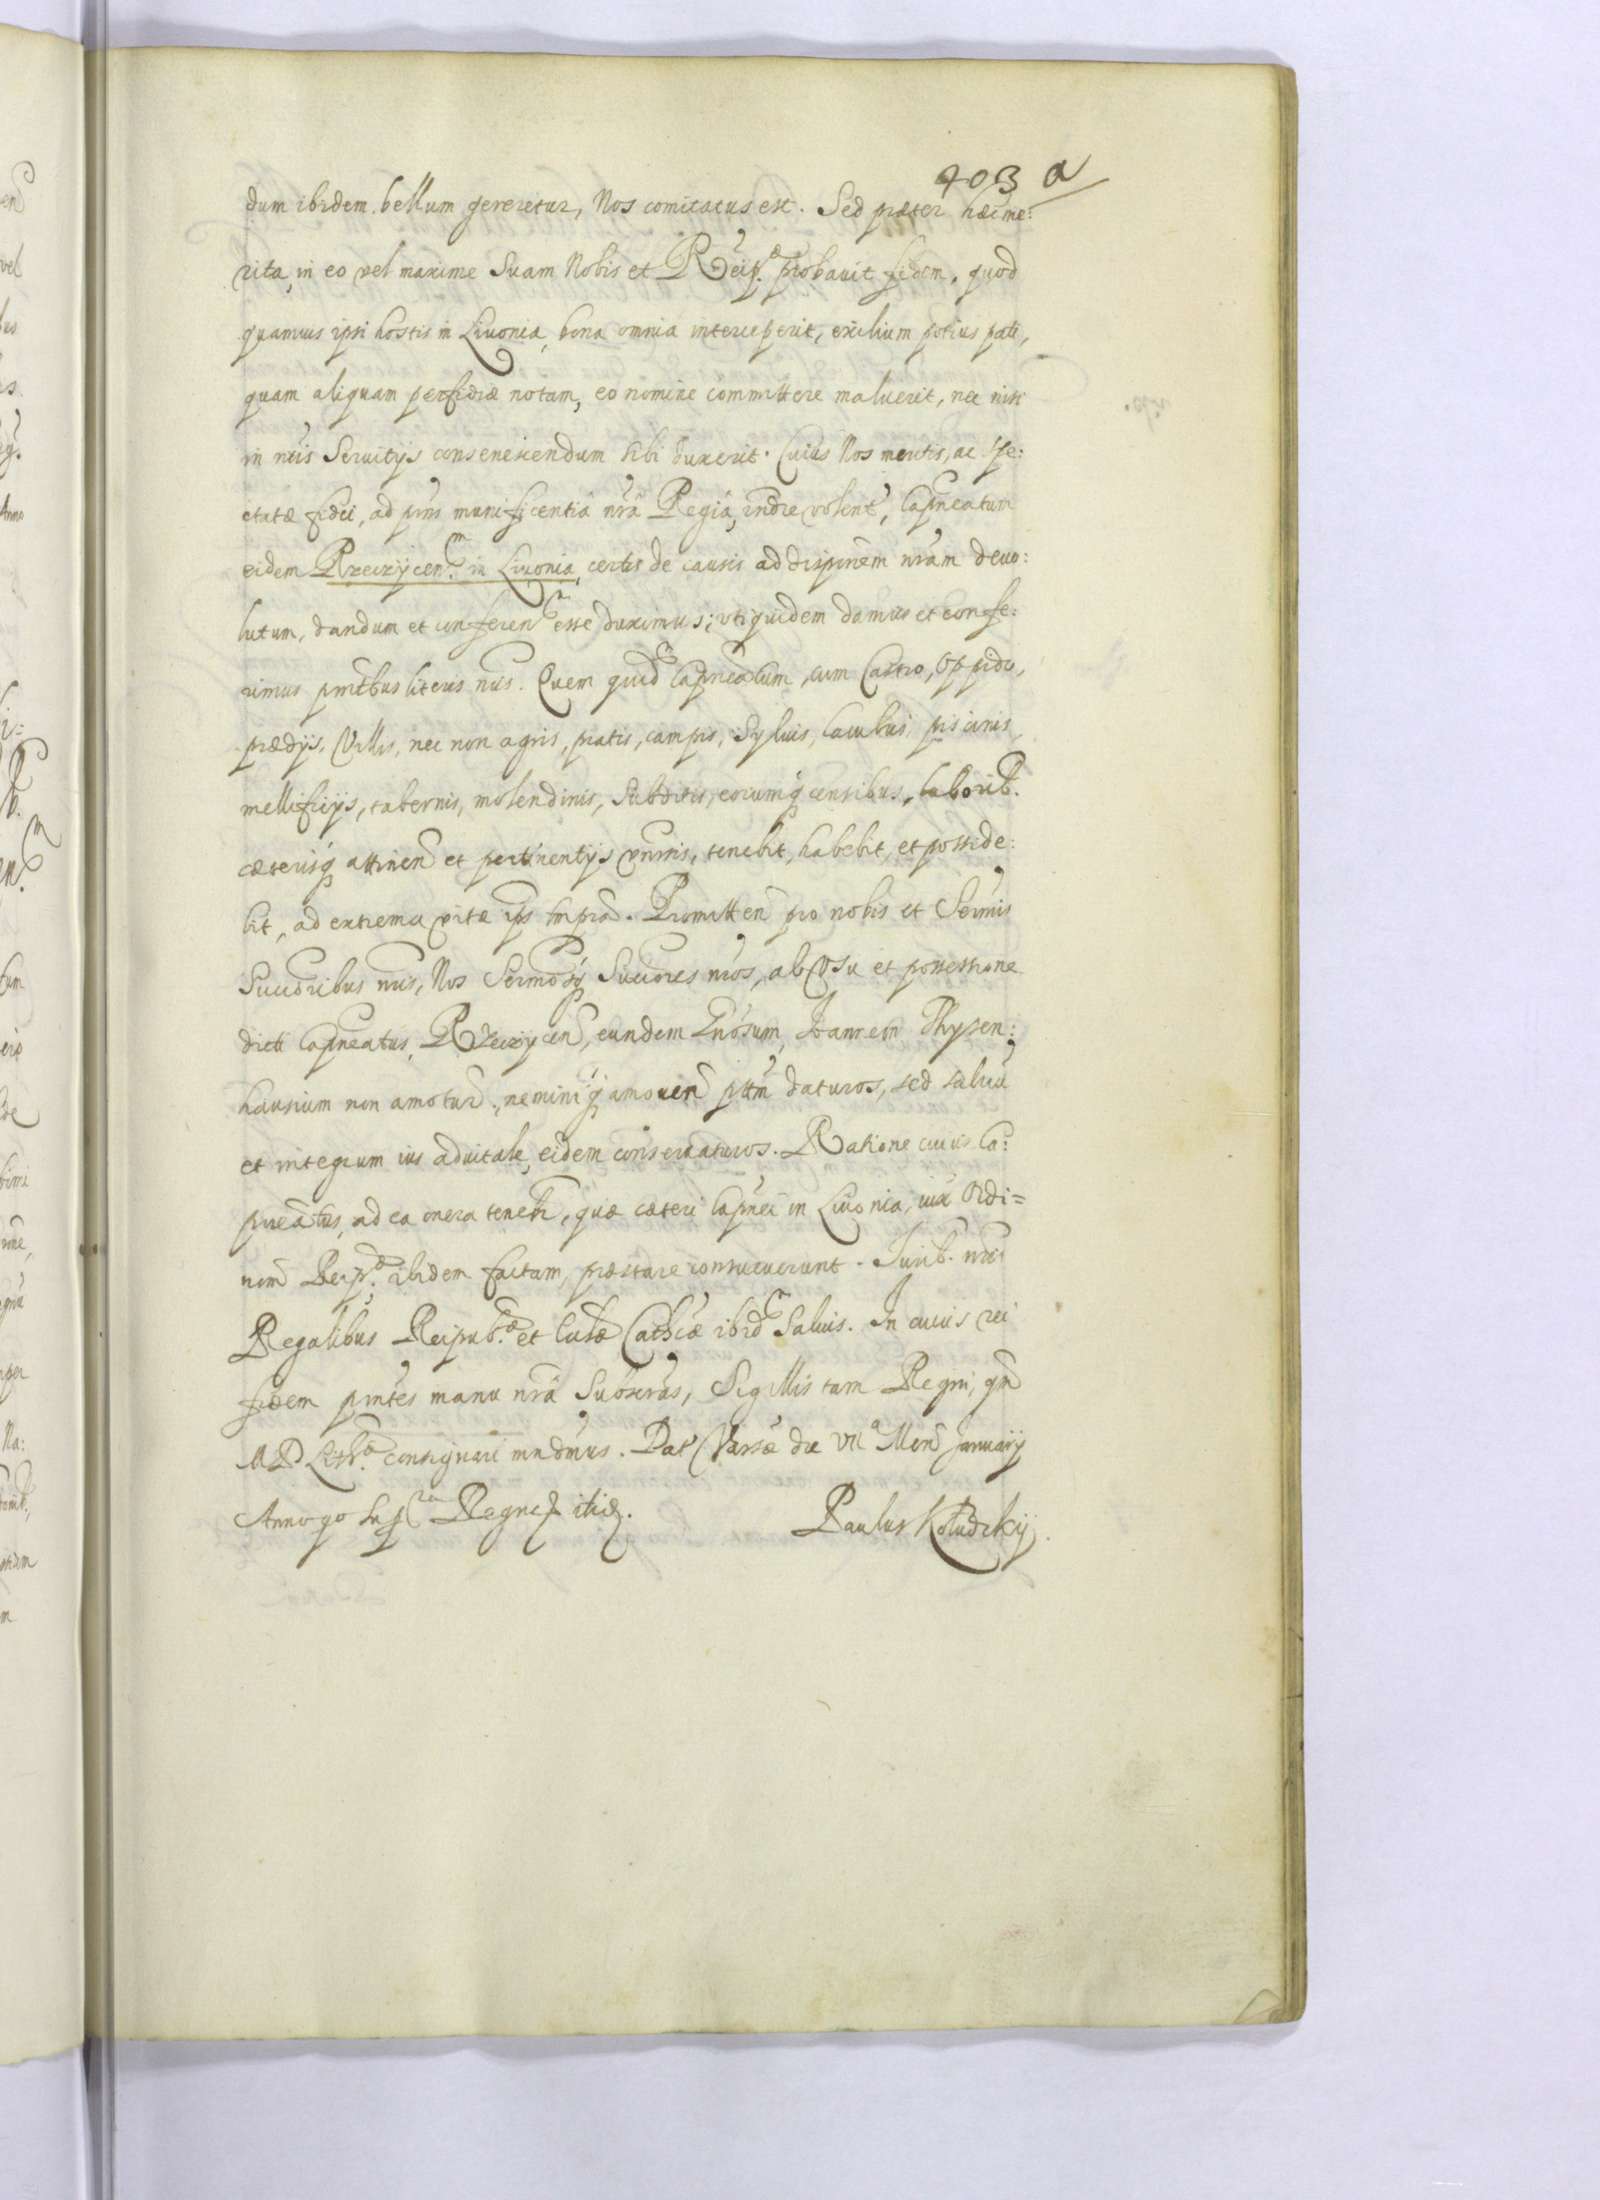 403 a
dum ibidem bellum gereretur, Nos comitatus est. Sed præter hæc me:
rita, in eo vel maxime Suam Nobis et Reip. probauit fidem, quod
quamuis ipsi hostis in Liuonia, bona omnia interceperit, exilium potius pati,
quam aliquam perfidiæ notam, eo nomine committere maluerit, nec nisi
in nris Seruitys consenescendum sibi duxerit. Cuius Nos meritis, ac spe:
ctatæ fidei, ad pns munificentiâ nrâ Regiâ, indre volent, Capneatum
eidem Rzeczycen. in Liuonia, certis de causis ad dispnem nram deuo:
lutum, dandum et conferen esse duximus; vti quidem damus et confe:
rimus pntibus literis nris. Quem quid Capneatum, cum Castro, Oppido,
prædijs, Villis, nec non agris, pratis, campis, Syluis, lacubus, piscinis,
mellificijs, tabernis, molendinis, Subditis, eorumq censibus, laborib.
cæterisq attinen et pertinentijs vnris, tenebit, habebit, et posside:
bit, ad extrema vitæ ips tmpra. Promitten pro nobis et Sermis
Succoribus nris, Nos Sermosq Succores nros, ab Vsu et possessione
dicti Capneatus, Rzeczycen, eundem Gnosum, Joannem Thysen:
hausium non amotur., neminiq amouen pttm daturos, sed saluu
et integrum ius aduitale, eidem conseruaturos. Ratione cuius Ca:
pneatus, ad ea onera tenebr, quæ cæteri Capnei in Liuonia, iux Ordi=
nom Reip. ibidem factam, præstare consueuerunt. Jurib. nris
Regalibus Reipub. et Cclsæ Cathcæ ibid Saluis. In cuius rei
fidem pntes manu nrâ Subscras, Sigillis tam Regni, qm
M D Lith. consignari mndmus. Dat Varsæ die VII Men January
Anno qo Sup Regnor itid.
Paulus Kołudzkij.